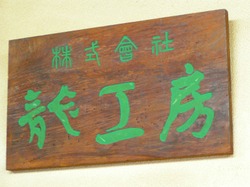 株式會社
龍工房